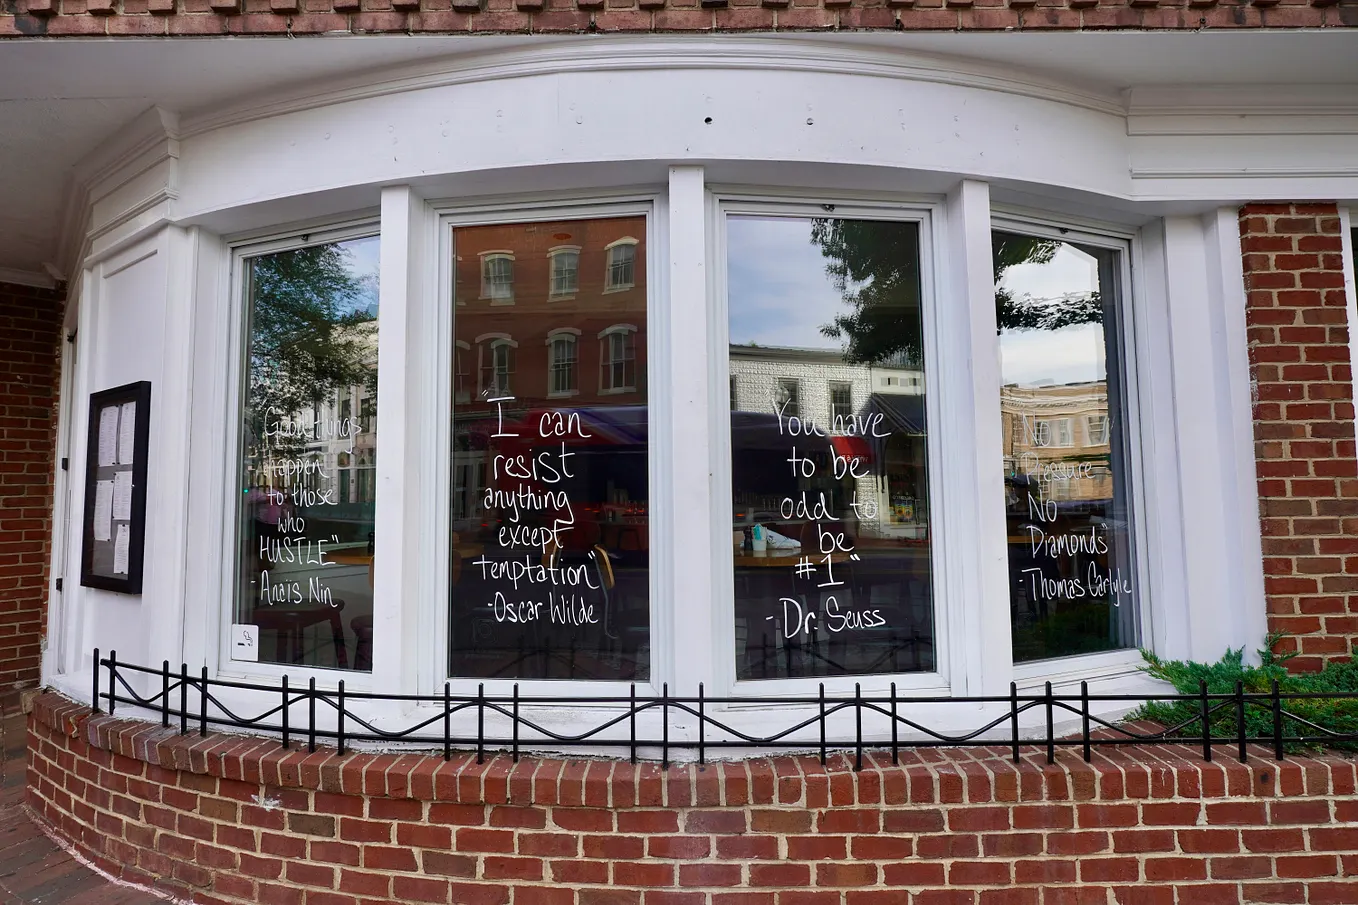 Good things
happen
to those
who
HUSTLE"
-Anaïs Nin
"I can
resist
anything
except
temptation"
-Oscar Wilde
You have
to be
odd to
be
#1"
-Dr. Seuss
No
Pressure
No
Diamonds"
-Thomas Carlyle